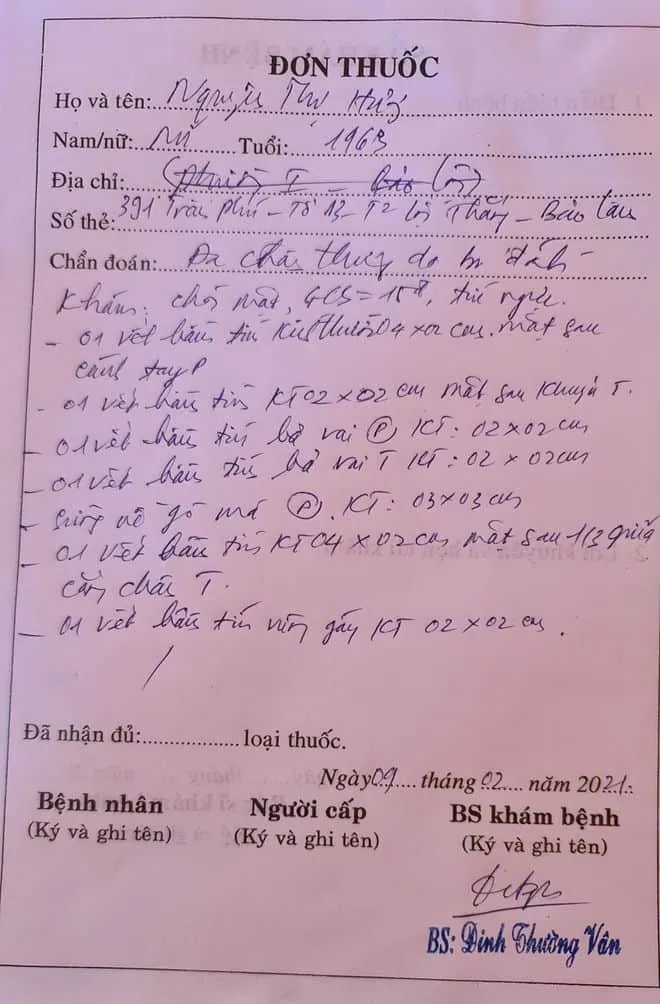 ĐƠN THUỐC
Họ và tên: Nguyễn Thị
Nam/nữ: Nữ Tuổi: 1963
Địa chỉ: (Phường I - Bảo Lộc)
Số thẻ: 391 Trần Phú - Tổ 13 - T2 Lộc Thắng - Bảo Lâm
Chẩn đoán: Đa chấn thương do bị đánh
Khám: chóng mặt, GCS = 15đ, tức ngực.
- 01 vết bầm tím Kích thước 04 x 02 cm. mặt sau
cánh tay P
- 01 vết bầm tím KT 02 x 02 cm mặt sau khuỷu T.
- 01 vết bầm tím bả vai (P) KT: 02 x 02 cm
- 01 vết bầm tím bả vai T KT: 02 x 02 cm
- Sưng nề gò má (P). KT: 03 x 03 cm
- 01 vết bầm tím KT 04 x 02 cm mặt sau 1/3 giữa
cẳng chân T.
- 01 vết bầm tím vùng gáy KT 02 x 02 cm.
Đã nhận đủ: loại thuốc.
Ngày 09 tháng 02 năm 2021
Bệnh nhân Người cấp BS khám bệnh
(Ký và ghi tên) (Ký và ghi tên) (Ký và ghi tên)
BS: Đinh Thường Vân